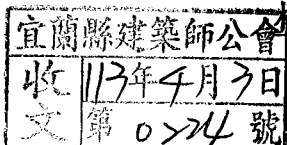 宜蘭縣建築師公會
收文
113年4月3日
第 0224 號